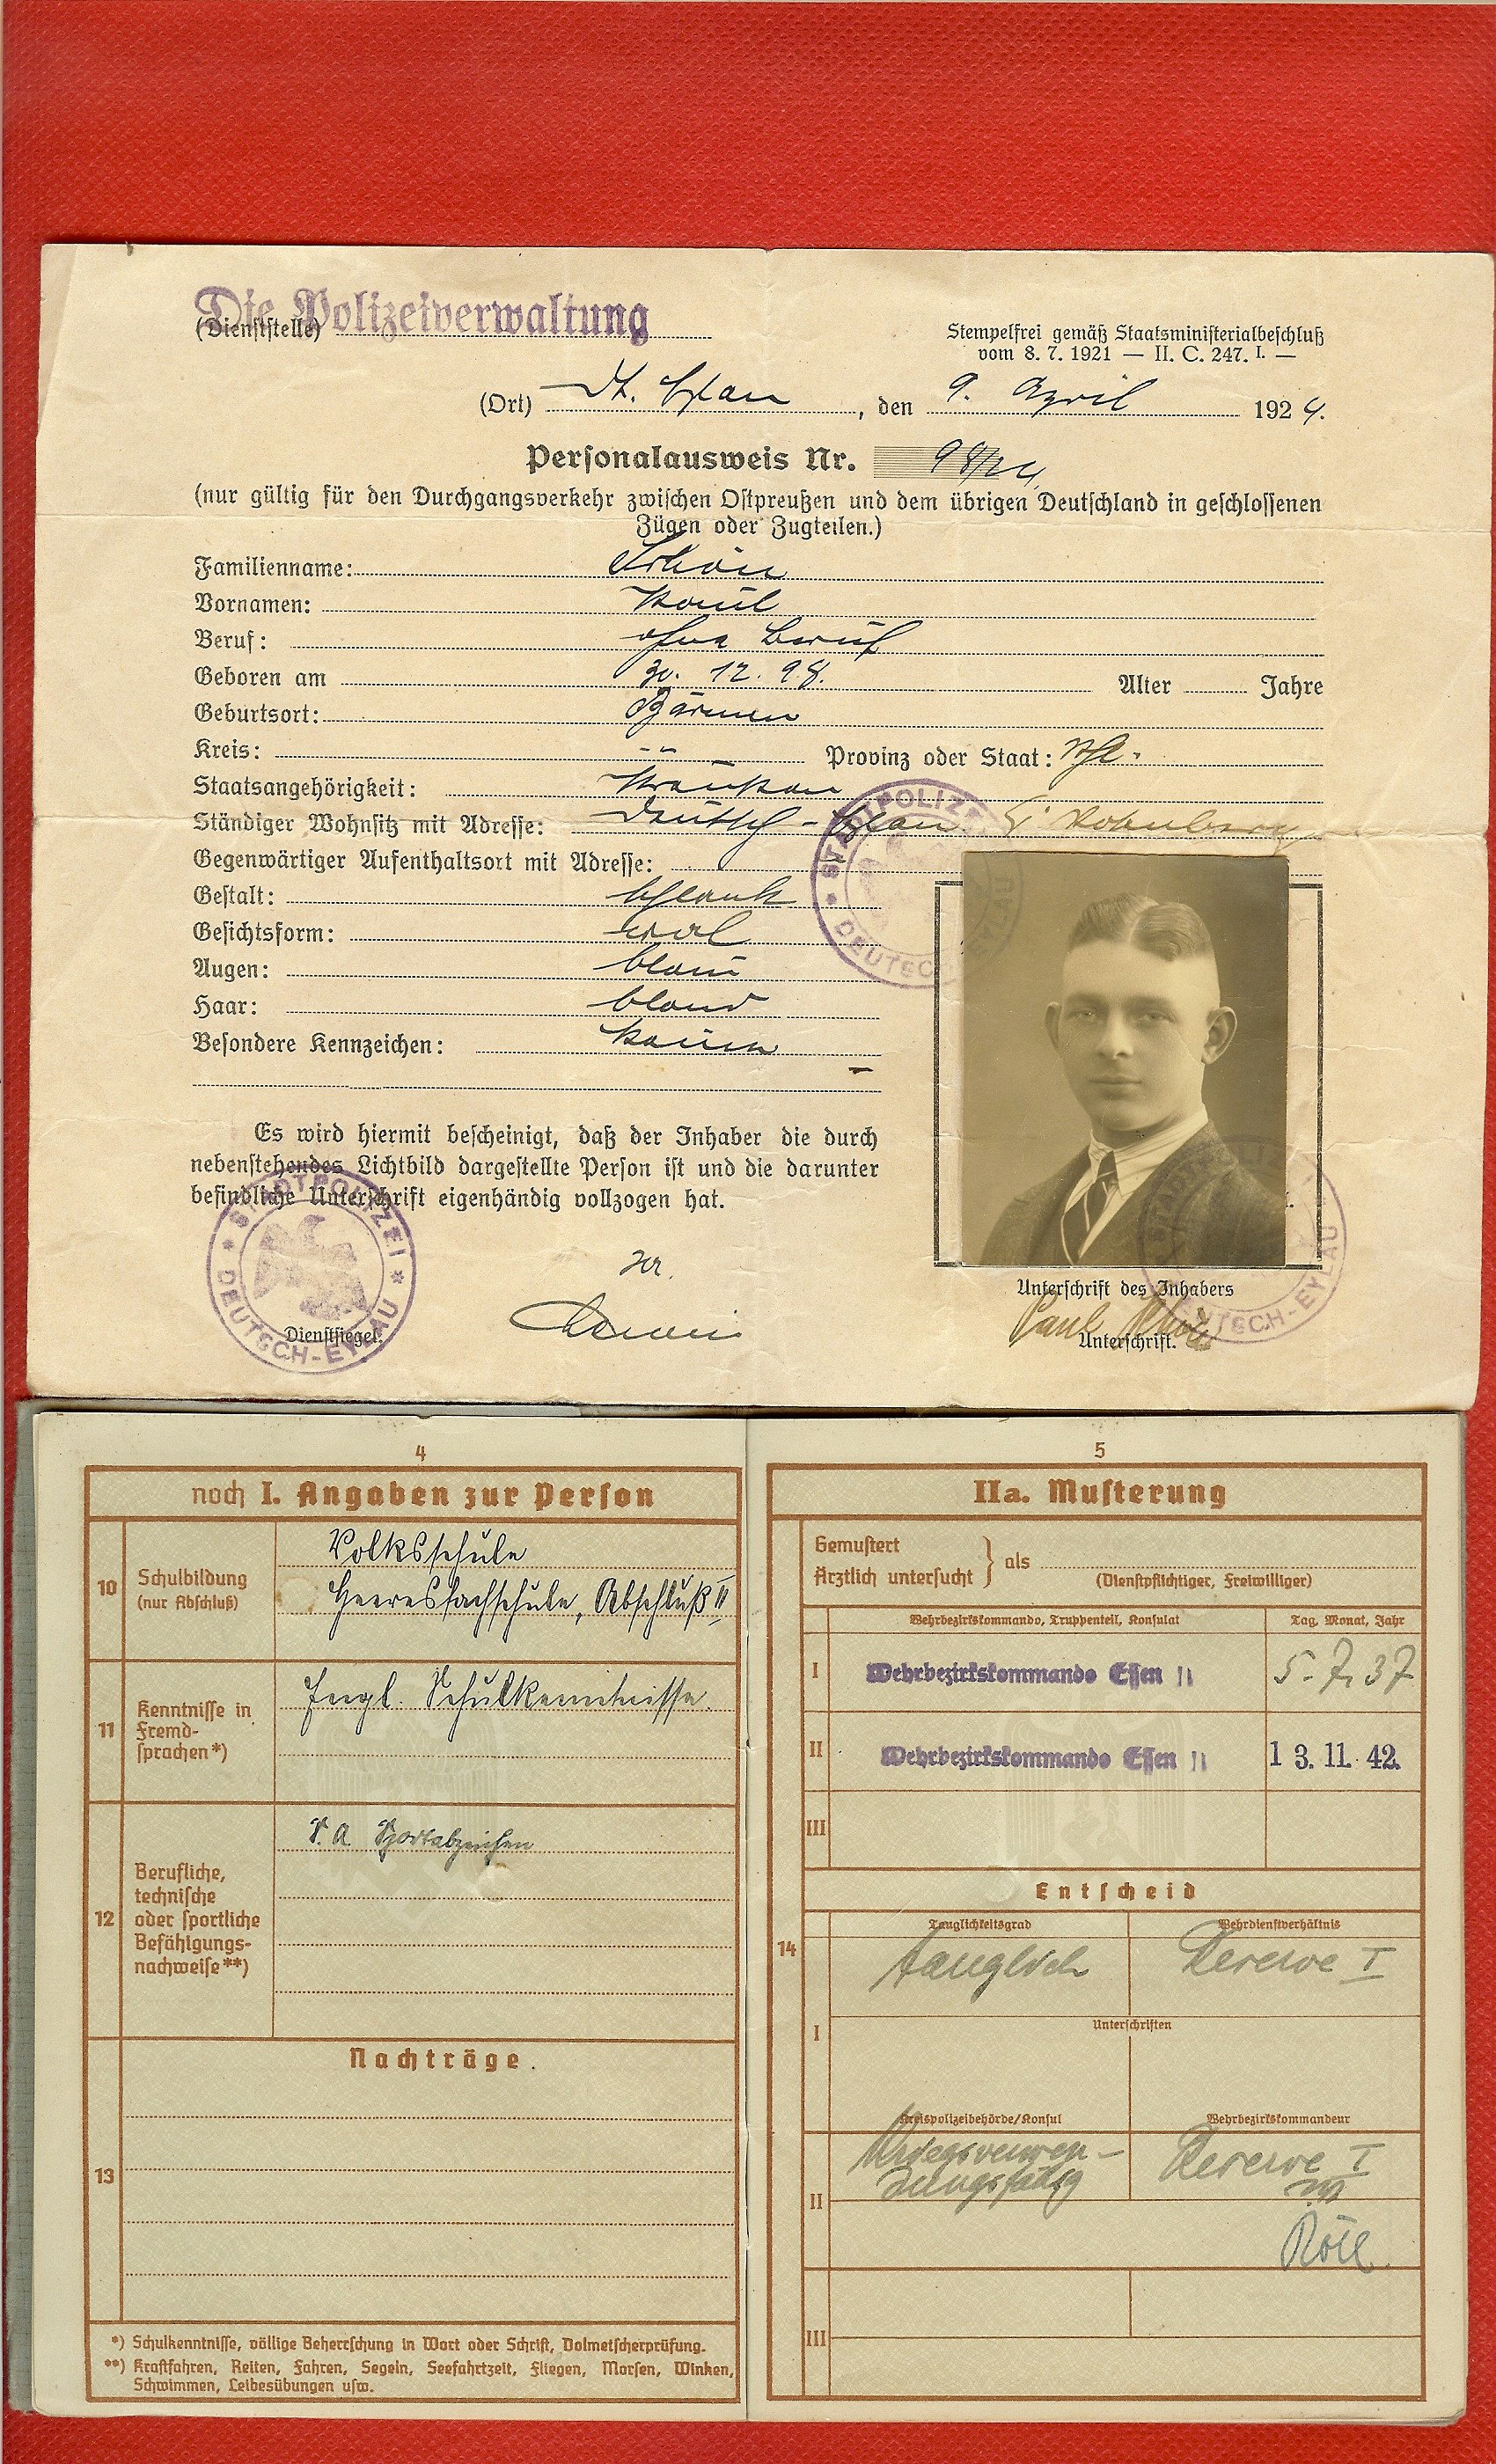 Die Polizeiverwaltung
(Dienststelle)
Stempelfrei gemäß Staatsministerialbeschluß
vom 8. 7. 1921 — II. C. 247. I. —
(Ort) Dt. Eylau, den 9. April 1924.
Personalausweis Nr. 98/24
(nur gültig für den Durchgangsverkehr zwischen Ostpreußen und dem übrigen Deutschland in geschlossenen
Zügen oder Zugteilen.)
Familienname: Schön
Vornamen: Paul
Beruf: ohne Beruf
Geboren am 30. 12. 98. Alter Jahre
Geburtsort: Barmen
Kreis: Provinz oder Staat:
Staatsangehörigkeit: Preußen
Ständiger Wohnsitz mit Adresse: Deutsch-Eylau
Gegenwärtiger Aufenthaltsort mit Adresse:
Gestalt: schlank
Gesichtsform: oval
Augen: blau
Haar: blond
Besondere Kennzeichen: keine
STADTPOLIZEI * DEUTSCH-EYLAU *
Es wird hiermit bescheinigt, daß der Inhaber die durch
nebenstehendes Lichtbild dargestellte Person ist und die darunter
befindliche Unterschrift eigenhändig vollzogen hat.
STADTPOLIZEI * DEUTSCH-EYLAU *
Dienstsiegel.
Unterschrift des Inhabers
Paul Schön
Unterschrift.
STADTPOLIZEI DEUTSCH-EYLAU
4
noch I. Angaben zur Person
10 Schulbildung
(nur Abschluß)
Volksschule
Heeresfachschule, Abschluß II
11 Kenntnisse in
Fremd-
sprachen*)
Engl. Schulkenntnisse.
12 Berufliche,
technische
oder sportliche
Befähigungs-
nachweise**)
S.A. Sportabzeichen
Nachträge.
13
*) Schulkenntnisse, völlige Beherrschung in Wort oder Schrift, Dolmetscherprüfung.
**) Kraftfahren, Reiten, Fahren, Segeln, Seefahrtzeit, Fliegen, Morsen, Winken,
Schwimmen, Leibesübungen usw.
5
IIa. Musterung
Gemustert
Ärztlich untersucht } als
(Dienstpflichtiger, Freiwilliger)
Wehrbezirkskommando, Truppenteil, Konsulat Tag, Monat, Jahr
I Wehrbezirkskommando Essen II 5.7.37
II Wehrbezirkskommando Essen II 13. 11. 42.
III
Entscheid
14
Tauglichkeitsgrad Wehrdienstverhältnis
I tauglich Reserve I
Unterschriften
Kreispolizeibehörde/Konsul Wehrbezirkskommandeur
II Kriegsverwen-
dungsfähig Reserve I
III